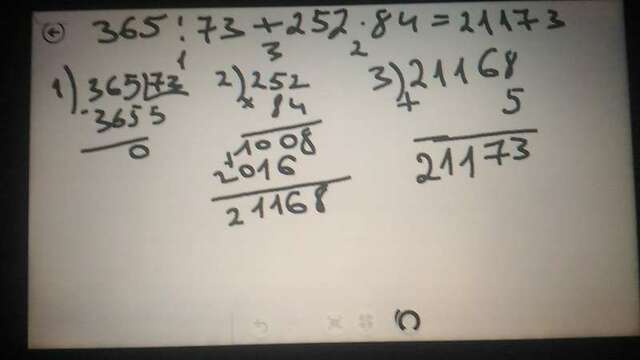 365 : 73 + 252 · 84 = 21173
1 3 2
1) 365 73
- 365 5
0
2) 252
× 84
+ 1008
2016
21168
3) 21168
+ 5
21173